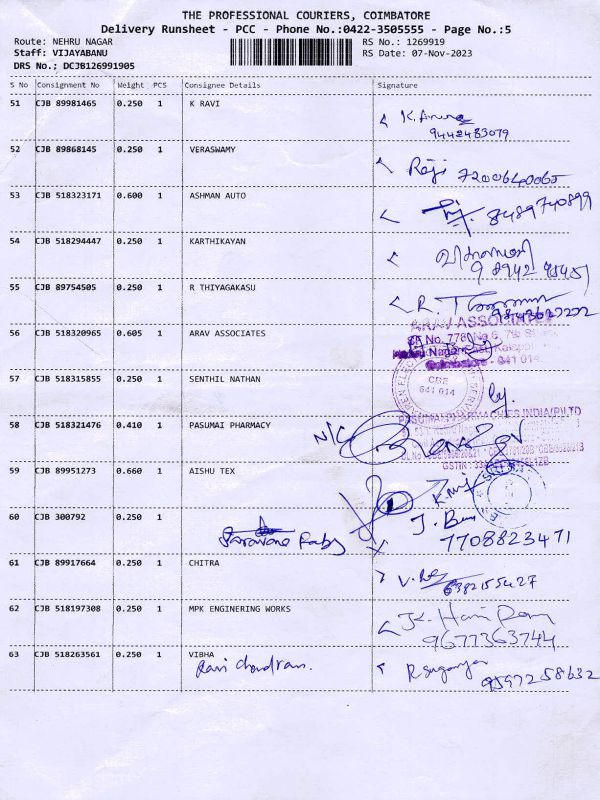 THE PROFESSIONAL COURIERS, COIMBATORE
Delivery Runsheet - PCC - Phone No.:0422-3505555 - Page No.:5
Route: NEHRU NAGAR RS No.: 1269919
Staff: VIJAYABANU RS Date: 07-Nov-2023
DRS No.; DCJB126991905
S No Consignment No Weight PCS Consignee Details Signature
51 CJB 89981465 0.250 1 K RAVI
9442483079
52 CJB 89868145 0.250 1 VERASWAMY
Raji 7200640065
53 CJB 518323171 0.600 1 ASHMAN AUTO
8489740899
54 CJB 518294447 0.250 1 KARTHIKAYAN
55 CJB 89754505 0.250 1 R THIYAGAKASU
R. T
56 CJB 518320965 0.605 1 ARAV ASSOCIATES
ARAV ASSOCIATES
Coimbatore - 641 014
CBE
641 014
57 CJB 518315855 0.250 1 SENTHIL NATHAN
58 CJB 518321476 0.410 1 PASUMAI PHARMACY
N/C
PASUMAI PHARMACIES INDIA PVT LTD
59 CJB 89951273 0.660 1 AISHU TEX
60 CJB 300792 0.250 1
7708823471
61 CJB 89917664 0.250 1 CHITRA
6382155427
62 CJB 518197308 0.250 1 MPK ENGINERING WORKS
J.K. Hari Ram
9677363744
63 CJB 518263561 0.250 1 VIBHA
Ravi chandran.
R Suganya
9597258632